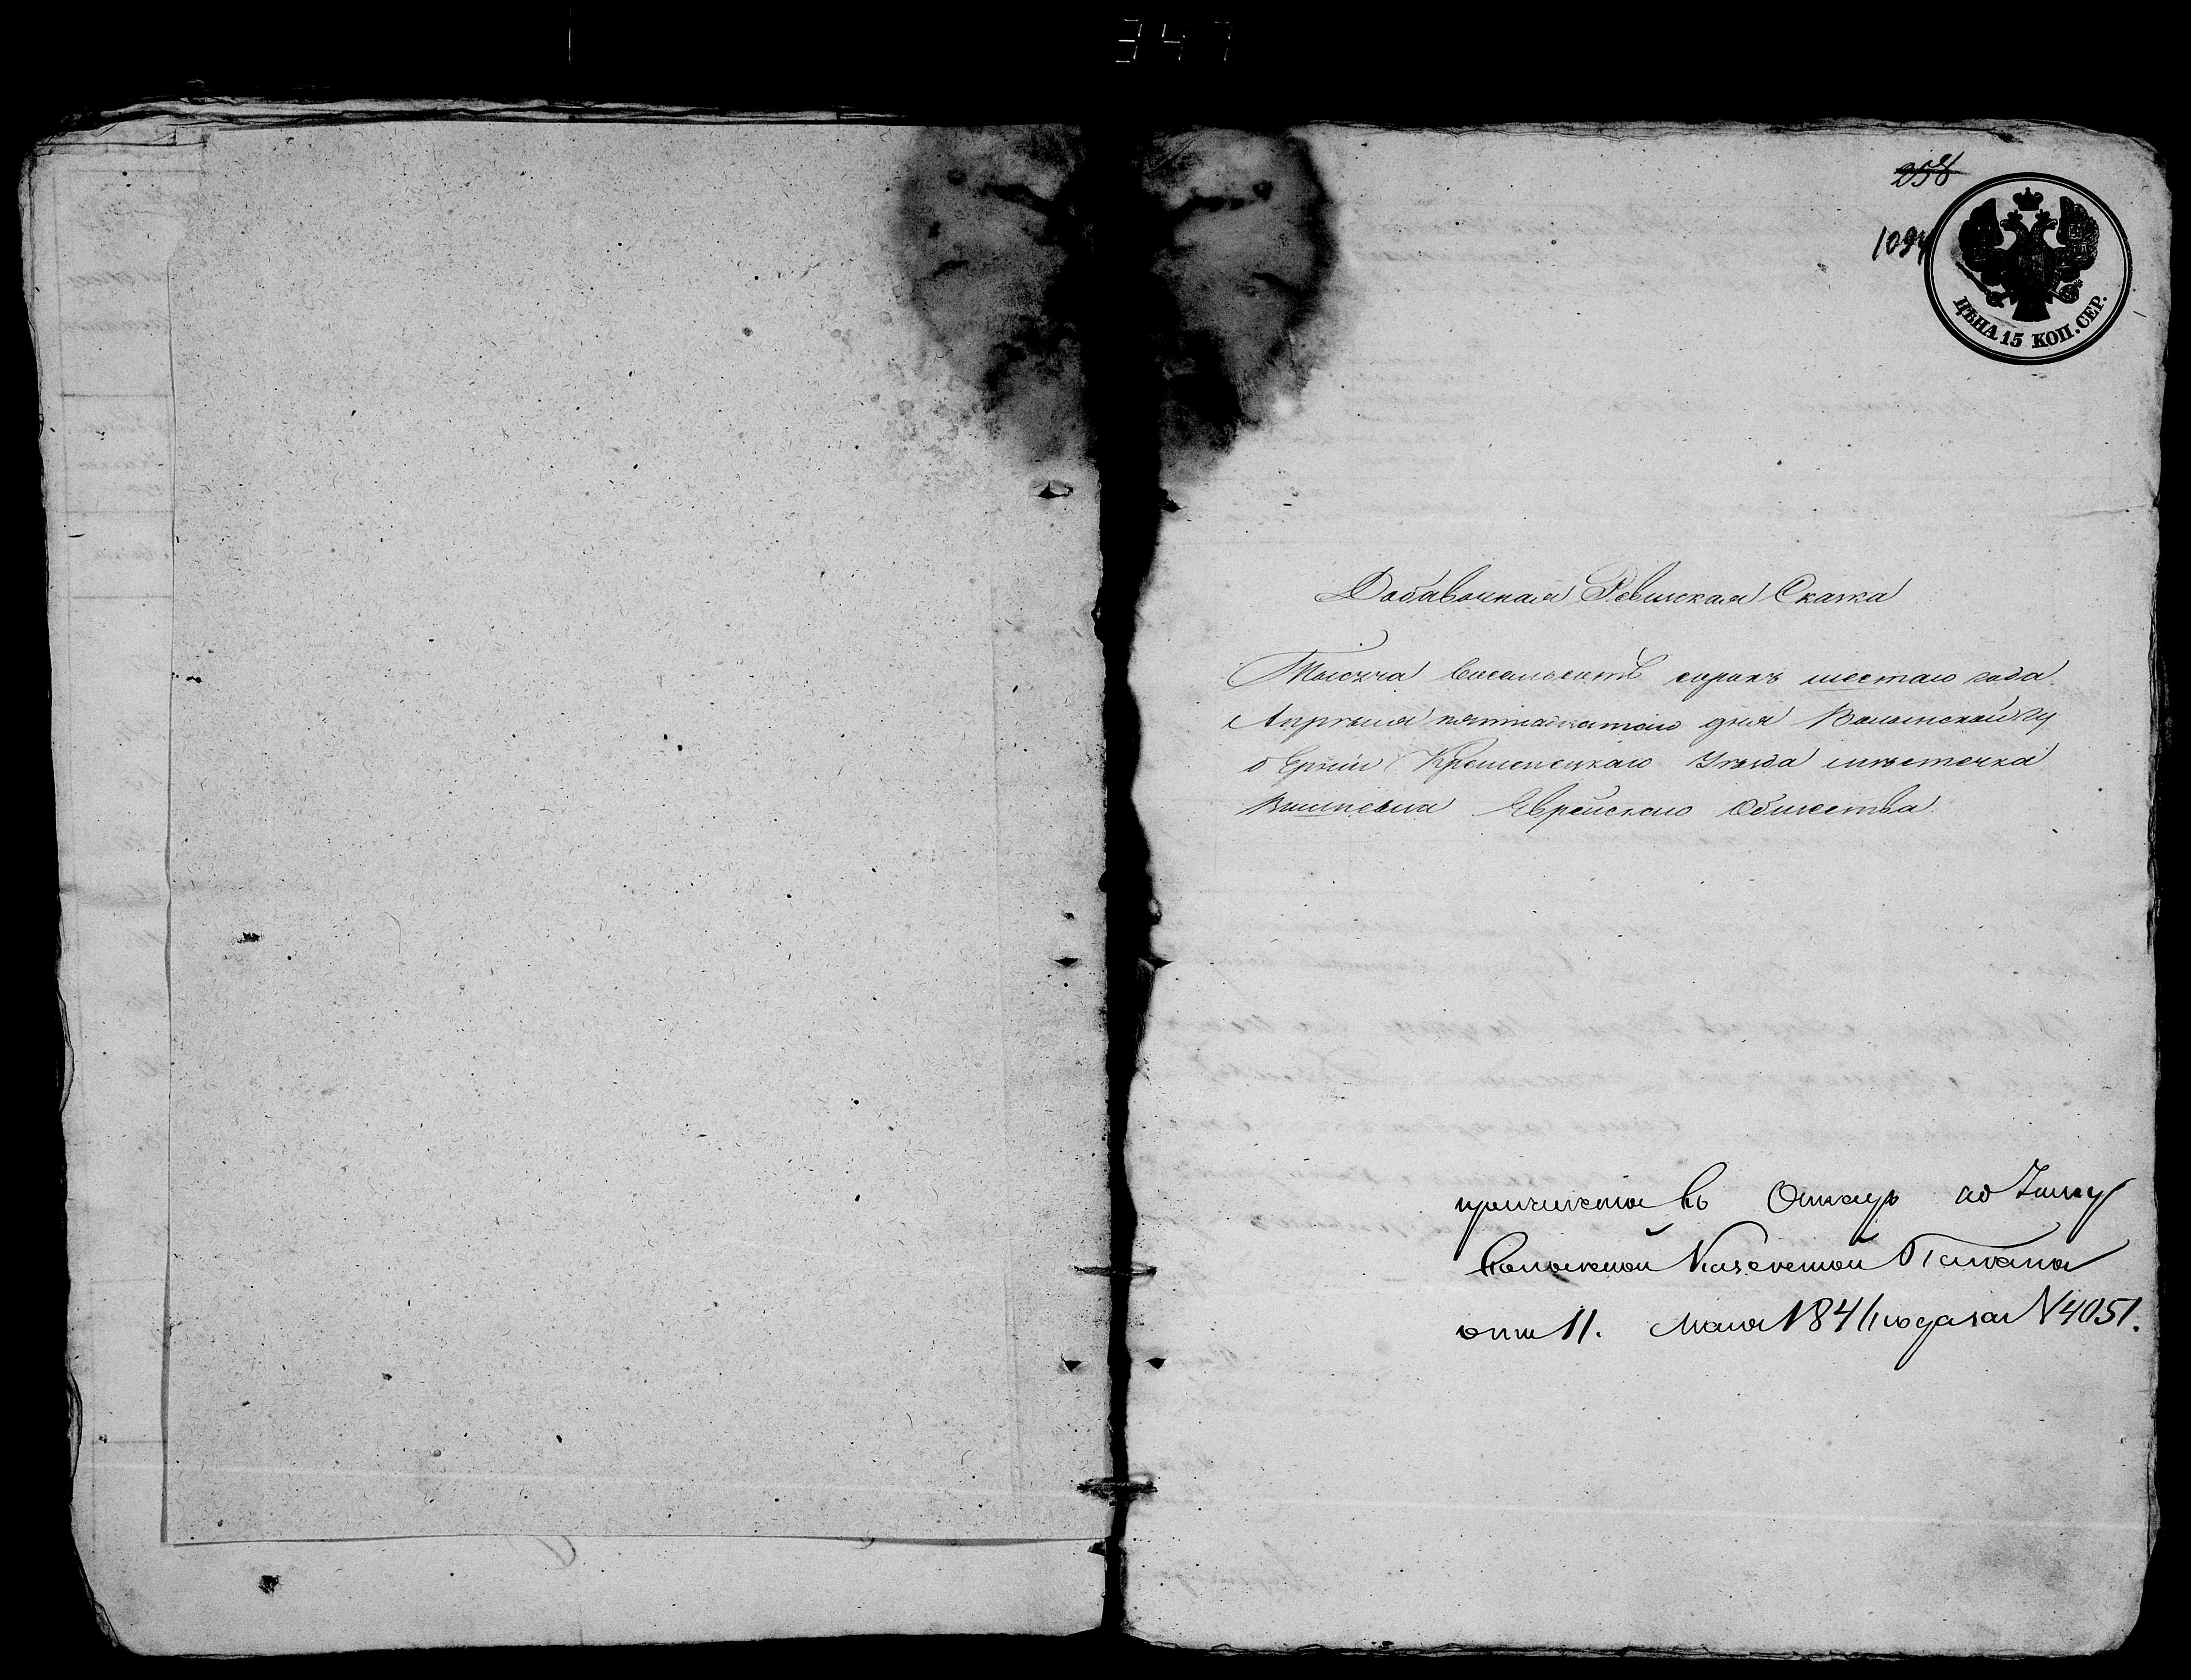 347
258
1094
ЦѢНА 15 КОП. СЕР.
Добавочная Ревизская Сказка
Тысяча восемьсотъ сорокъ шестаго года
Апрѣля пятнадцатаго дня Волынской Гу
берніи Кременецкаго Уѣзда мѣстечка
Вишневца Еврейскаго Общества
въ по Указу
Волынской Казенной Палаты
отъ 11. Мая 184 года за N 4051.